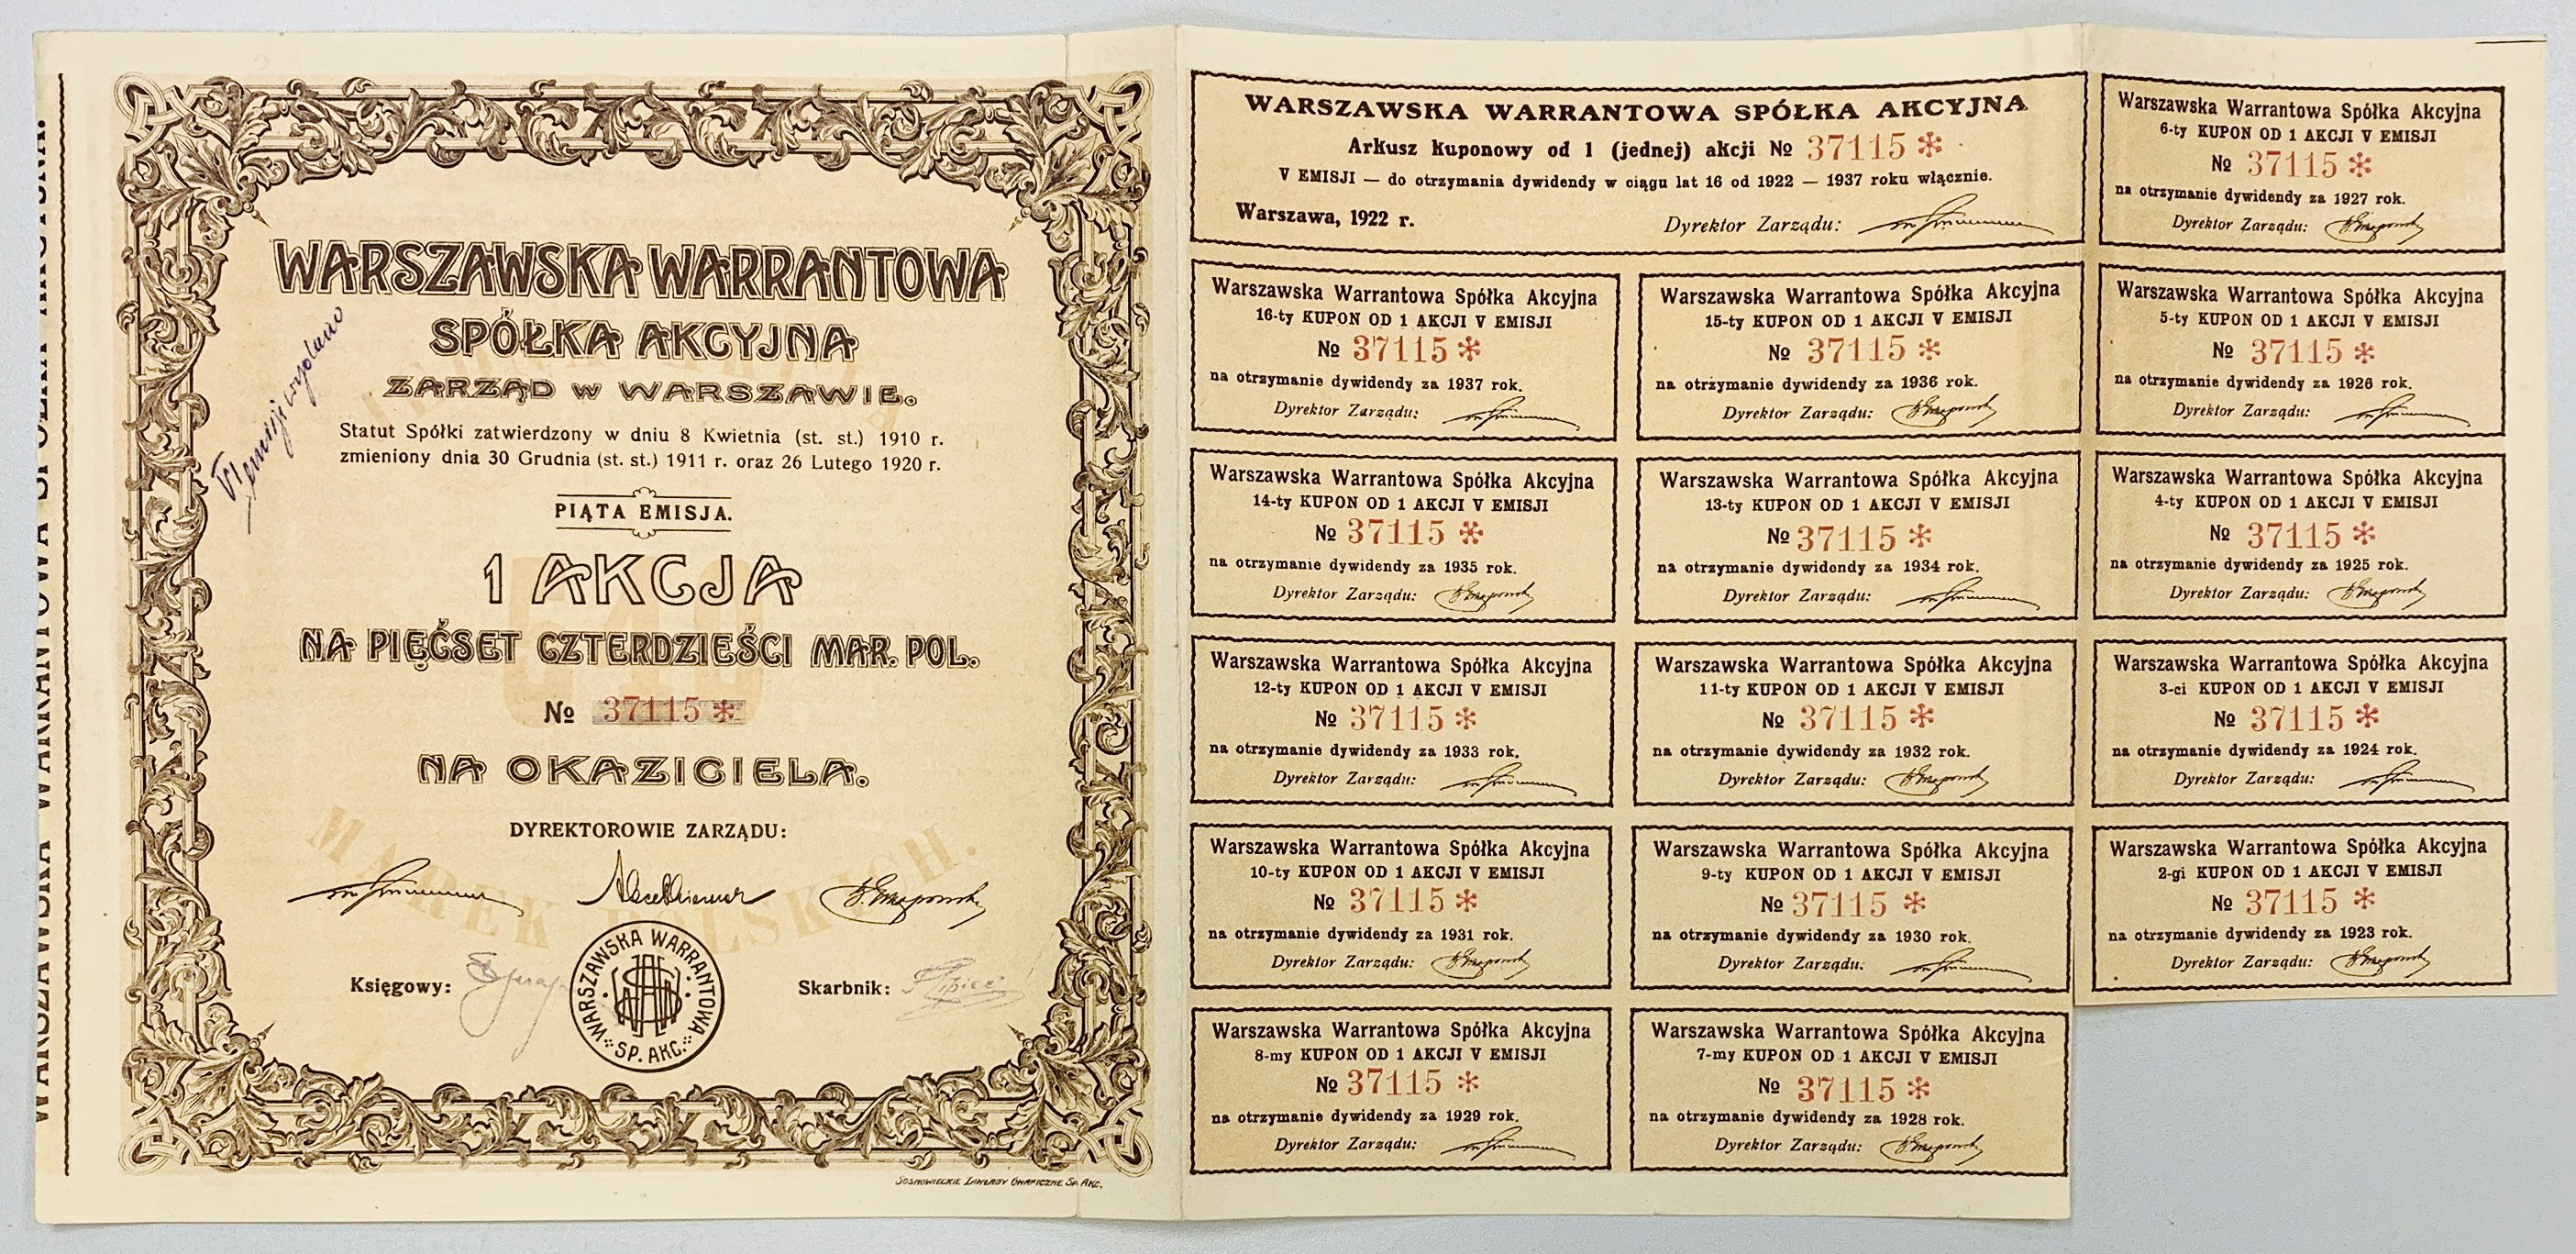 WARSZAWSKA WARRANTOWA SPÓŁKA AKCYJNA.
WARSZAWSKA WARRANTOWA
SPÓŁKA AKCYJNA
ZARZĄD W WARSZAWIE.
Statut Spółki zatwierdzony w dniu 8 Kwietnia (st. st.) 1910 r.
zmieniony dnia 30 Grudnia (st. st.) 1911 r. oraz 26 Lutego 1920 r.
VI emisji wydano
PIĄTA EMISJA.
1 AKCJA
NA PIĘĆSET CZTERDZIEŚCI MAR. POL.
540
№ 37115 *
NA OKAZICIELA.
MAREK POLSKICH.
DYREKTOROWIE ZARZĄDU:
Księgowy:
Skarbnik:
WARSZAWSKA WARRANTOWA
SP. AKC.
SOSNOWIECKIE ZAKŁADY GRAFICZNE SP. AKC.
WARSZAWSKA WARRANTOWA SPÓŁKA AKCYJNA
Arkusz kuponowy od 1 (jednej) akcji № 37115 *
V EMISJI — do otrzymania dywidendy w ciągu lat 16 od 1922 — 1937 roku włącznie.
Warszawa, 1922 r.
Dyrektor Zarządu:
Warszawska Warrantowa Spółka Akcyjna
6-ty KUPON OD 1 AKCJI V EMISJI
№ 37115 *
na otrzymanie dywidendy za 1927 rok.
Dyrektor Zarządu:
Warszawska Warrantowa Spółka Akcyjna
16-ty KUPON OD 1 AKCJI V EMISJI
№ 37115 *
na otrzymanie dywidendy za 1937 rok.
Dyrektor Zarządu:
Warszawska Warrantowa Spółka Akcyjna
15-ty KUPON OD 1 AKCJI V EMISJI
№ 37115 *
na otrzymanie dywidendy za 1936 rok.
Dyrektor Zarządu:
Warszawska Warrantowa Spółka Akcyjna
5-ty KUPON OD 1 AKCJI V EMISJI
№ 37115 *
na otrzymanie dywidendy za 1926 rok.
Dyrektor Zarządu:
Warszawska Warrantowa Spółka Akcyjna
14-ty KUPON OD 1 AKCJI V EMISJI
№ 37115 *
na otrzymanie dywidendy za 1935 rok.
Dyrektor Zarządu:
Warszawska Warrantowa Spółka Akcyjna
13-ty KUPON OD 1 AKCJI V EMISJI
№ 37115 *
na otrzymanie dywidendy za 1934 rok.
Dyrektor Zarządu:
Warszawska Warrantowa Spółka Akcyjna
4-ty KUPON OD 1 AKCJI V EMISJI
№ 37115 *
na otrzymanie dywidendy za 1925 rok.
Dyrektor Zarządu:
Warszawska Warrantowa Spółka Akcyjna
12-ty KUPON OD 1 AKCJI V EMISJI
№ 37115 *
na otrzymanie dywidendy za 1933 rok.
Dyrektor Zarządu:
Warszawska Warrantowa Spółka Akcyjna
11-ty KUPON OD 1 AKCJI V EMISJI
№ 37115 *
na otrzymanie dywidendy za 1932 rok.
Dyrektor Zarządu:
Warszawska Warrantowa Spółka Akcyjna
3-ci KUPON OD 1 AKCJI V EMISJI
№ 37115 *
na otrzymanie dywidendy za 1924 rok.
Dyrektor Zarządu:
Warszawska Warrantowa Spółka Akcyjna
10-ty KUPON OD 1 AKCJI V EMISJI
№ 37115 *
na otrzymanie dywidendy za 1931 rok.
Dyrektor Zarządu:
Warszawska Warrantowa Spółka Akcyjna
9-ty KUPON OD 1 AKCJI V EMISJI
№ 37115 *
na otrzymanie dywidendy za 1930 rok.
Dyrektor Zarządu:
Warszawska Warrantowa Spółka Akcyjna
2-gi KUPON OD 1 AKCJI V EMISJI
№ 37115 *
na otrzymanie dywidendy za 1923 rok.
Dyrektor Zarządu:
Warszawska Warrantowa Spółka Akcyjna
8-my KUPON OD 1 AKCJI V EMISJI
№ 37115 *
na otrzymanie dywidendy za 1929 rok.
Dyrektor Zarządu:
Warszawska Warrantowa Spółka Akcyjna
7-my KUPON OD 1 AKCJI V EMISJI
№ 37115 *
na otrzymanie dywidendy za 1928 rok.
Dyrektor Zarządu: